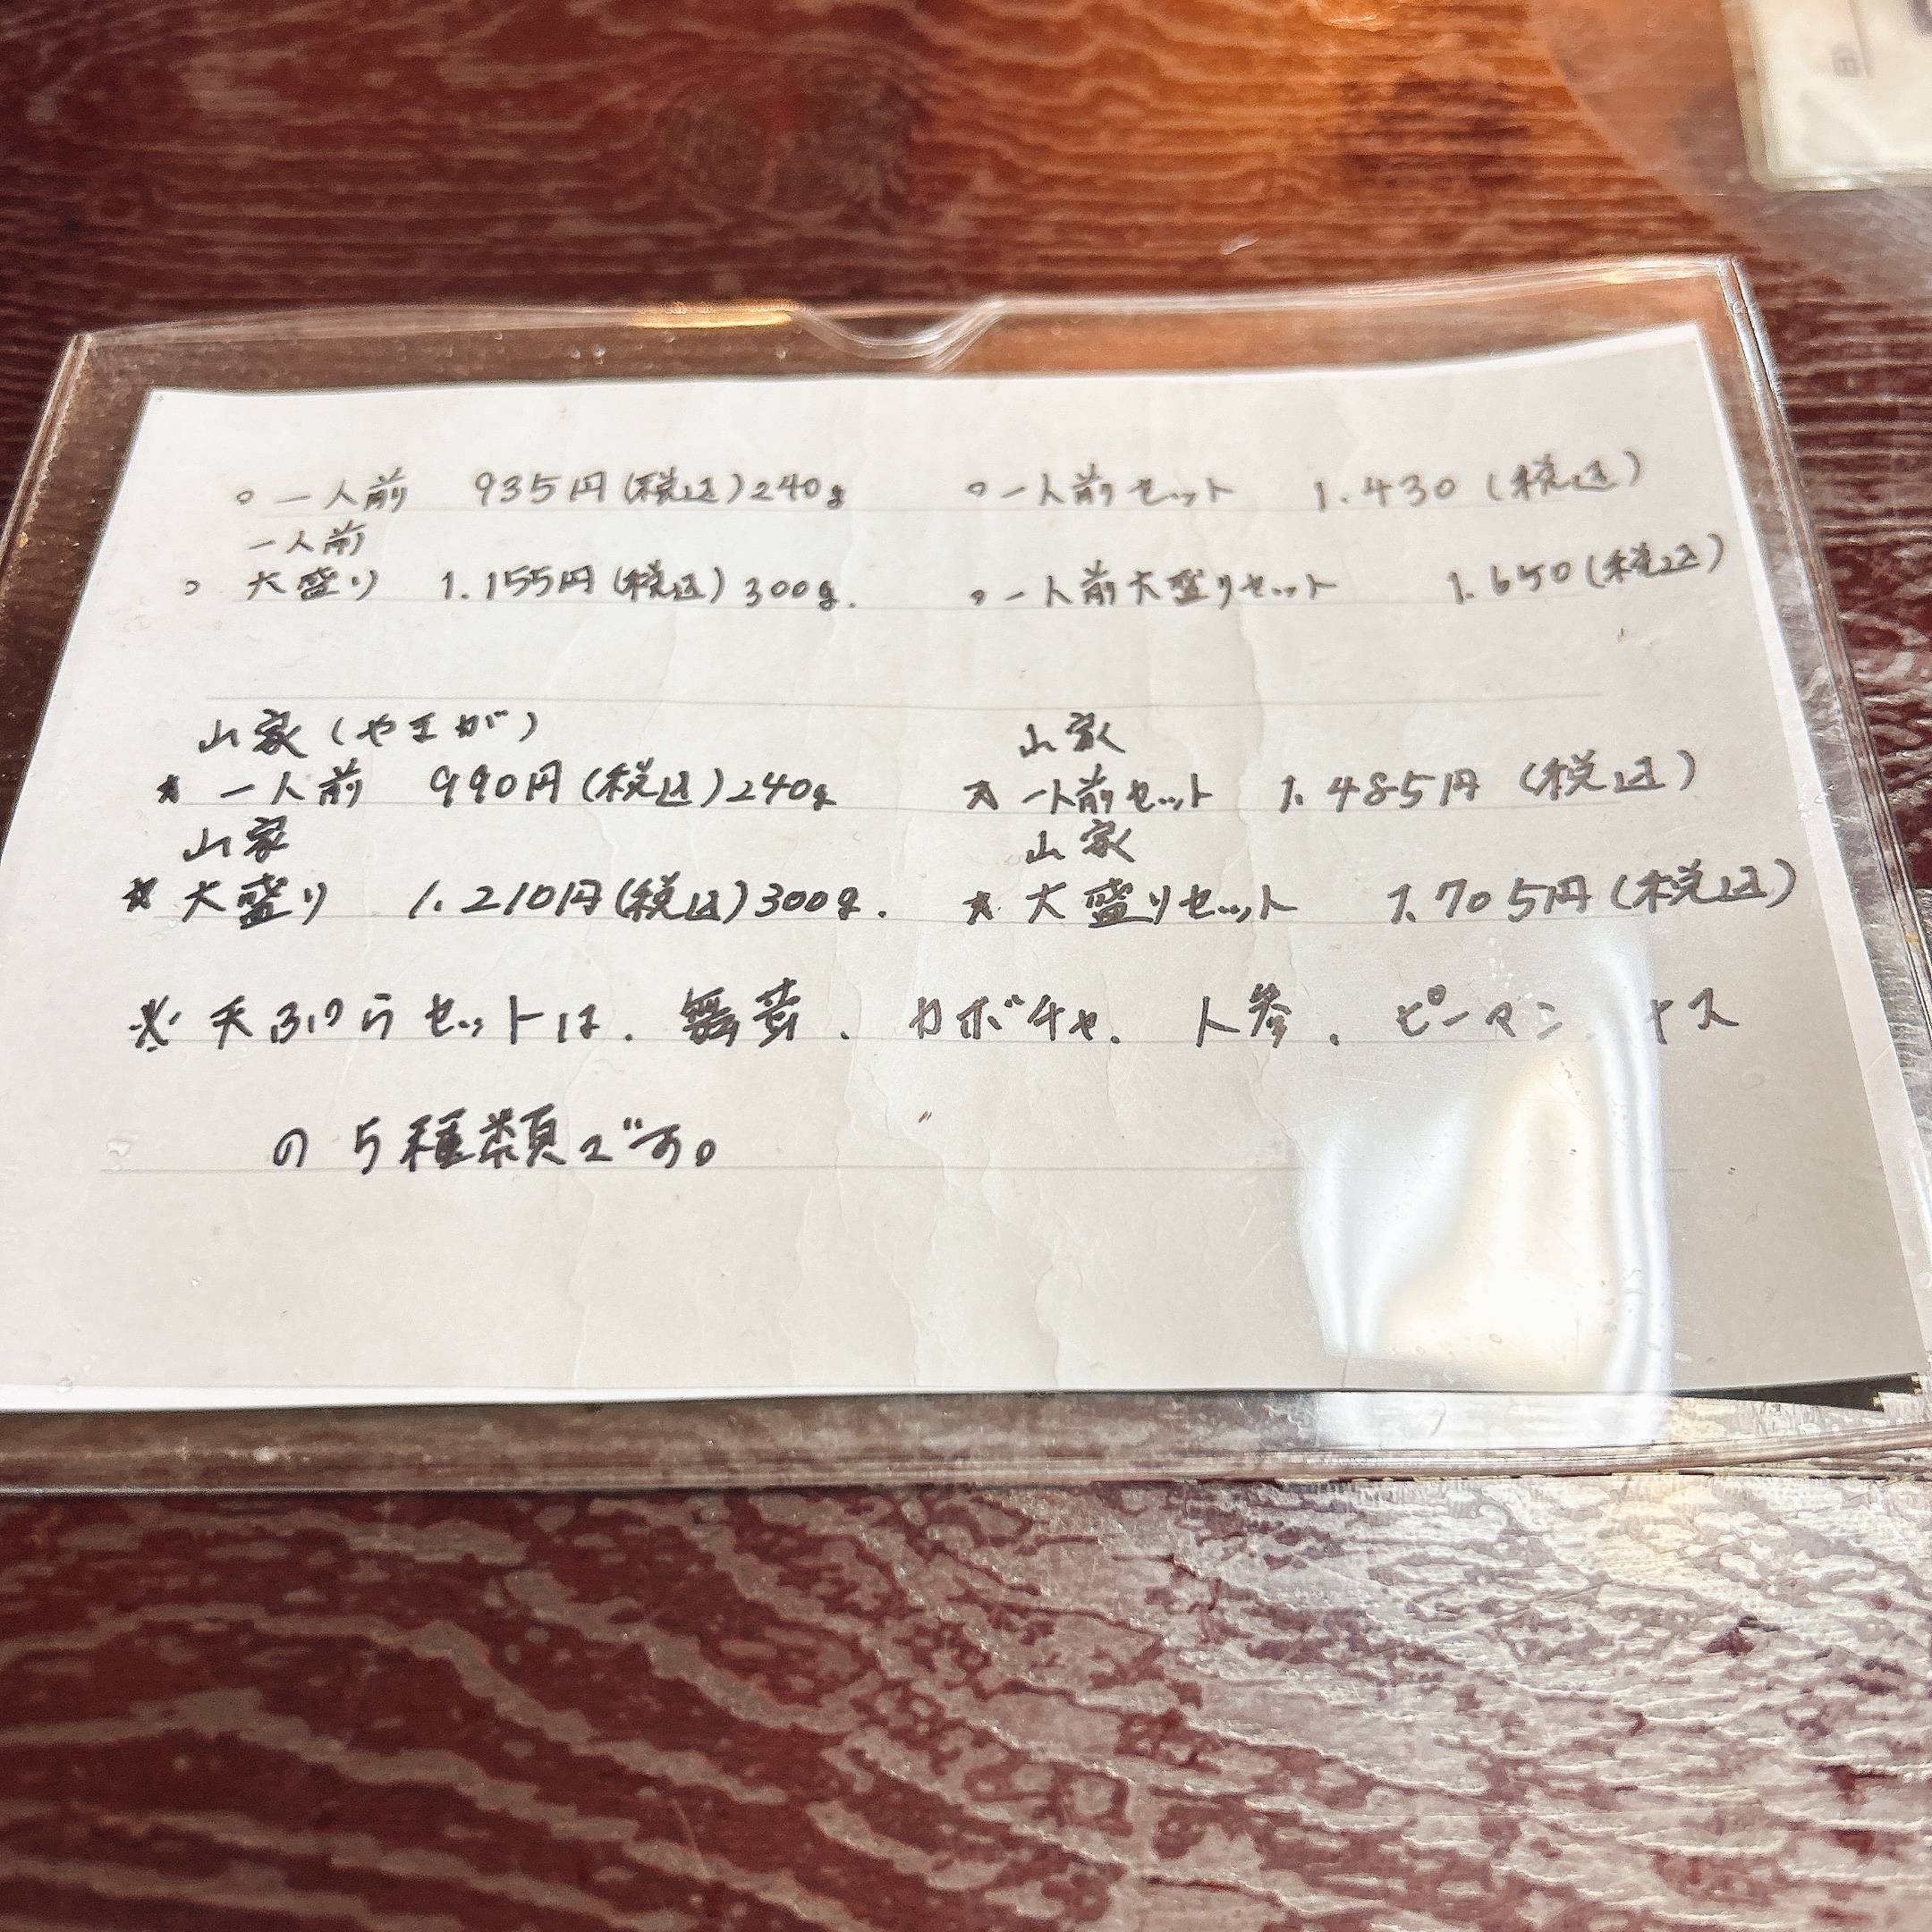 ○一人前 935円(税込)240g ○一人前セット 1.430(税込)
一人前
○大盛り 1.155円(税込)300g. ○一人前大盛りセット 1.650(税込)
山家(やまが) 山家
★一人前 990円(税込)240g ★一人前セット 1.485円(税込)
山家 山家
★大盛り 1.210円(税込)300g. ★大盛りセット 1.705円(税込)
※天ぷらセットは、舞茸、カボチャ、人参、ピーマン ナス
の5種類です。